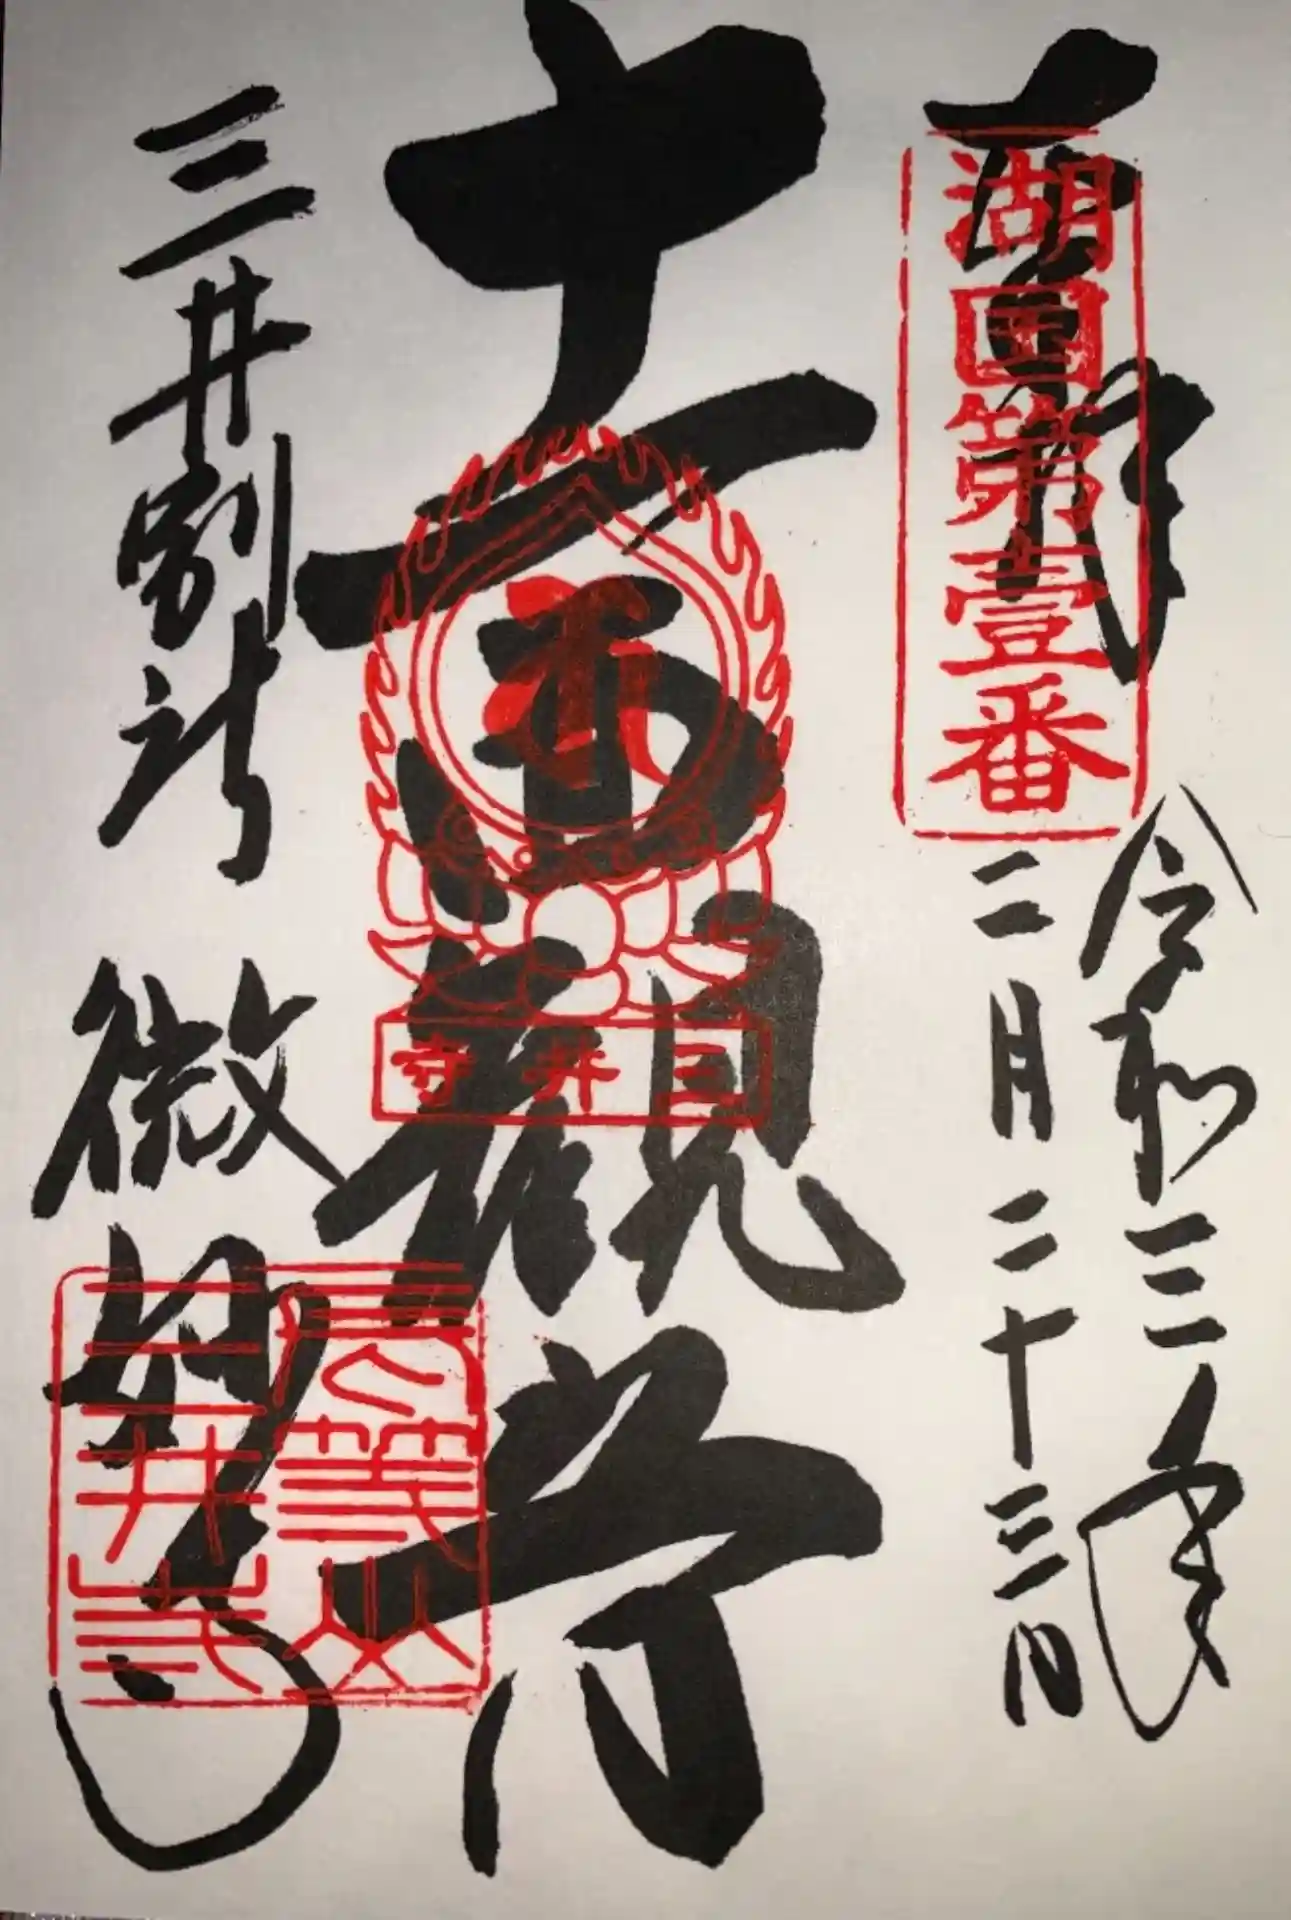 奉拝
湖国第壹番
令和三年
二月二十三日
十一面観音
三井寺
三井別所
微妙寺
長等山
三井寺